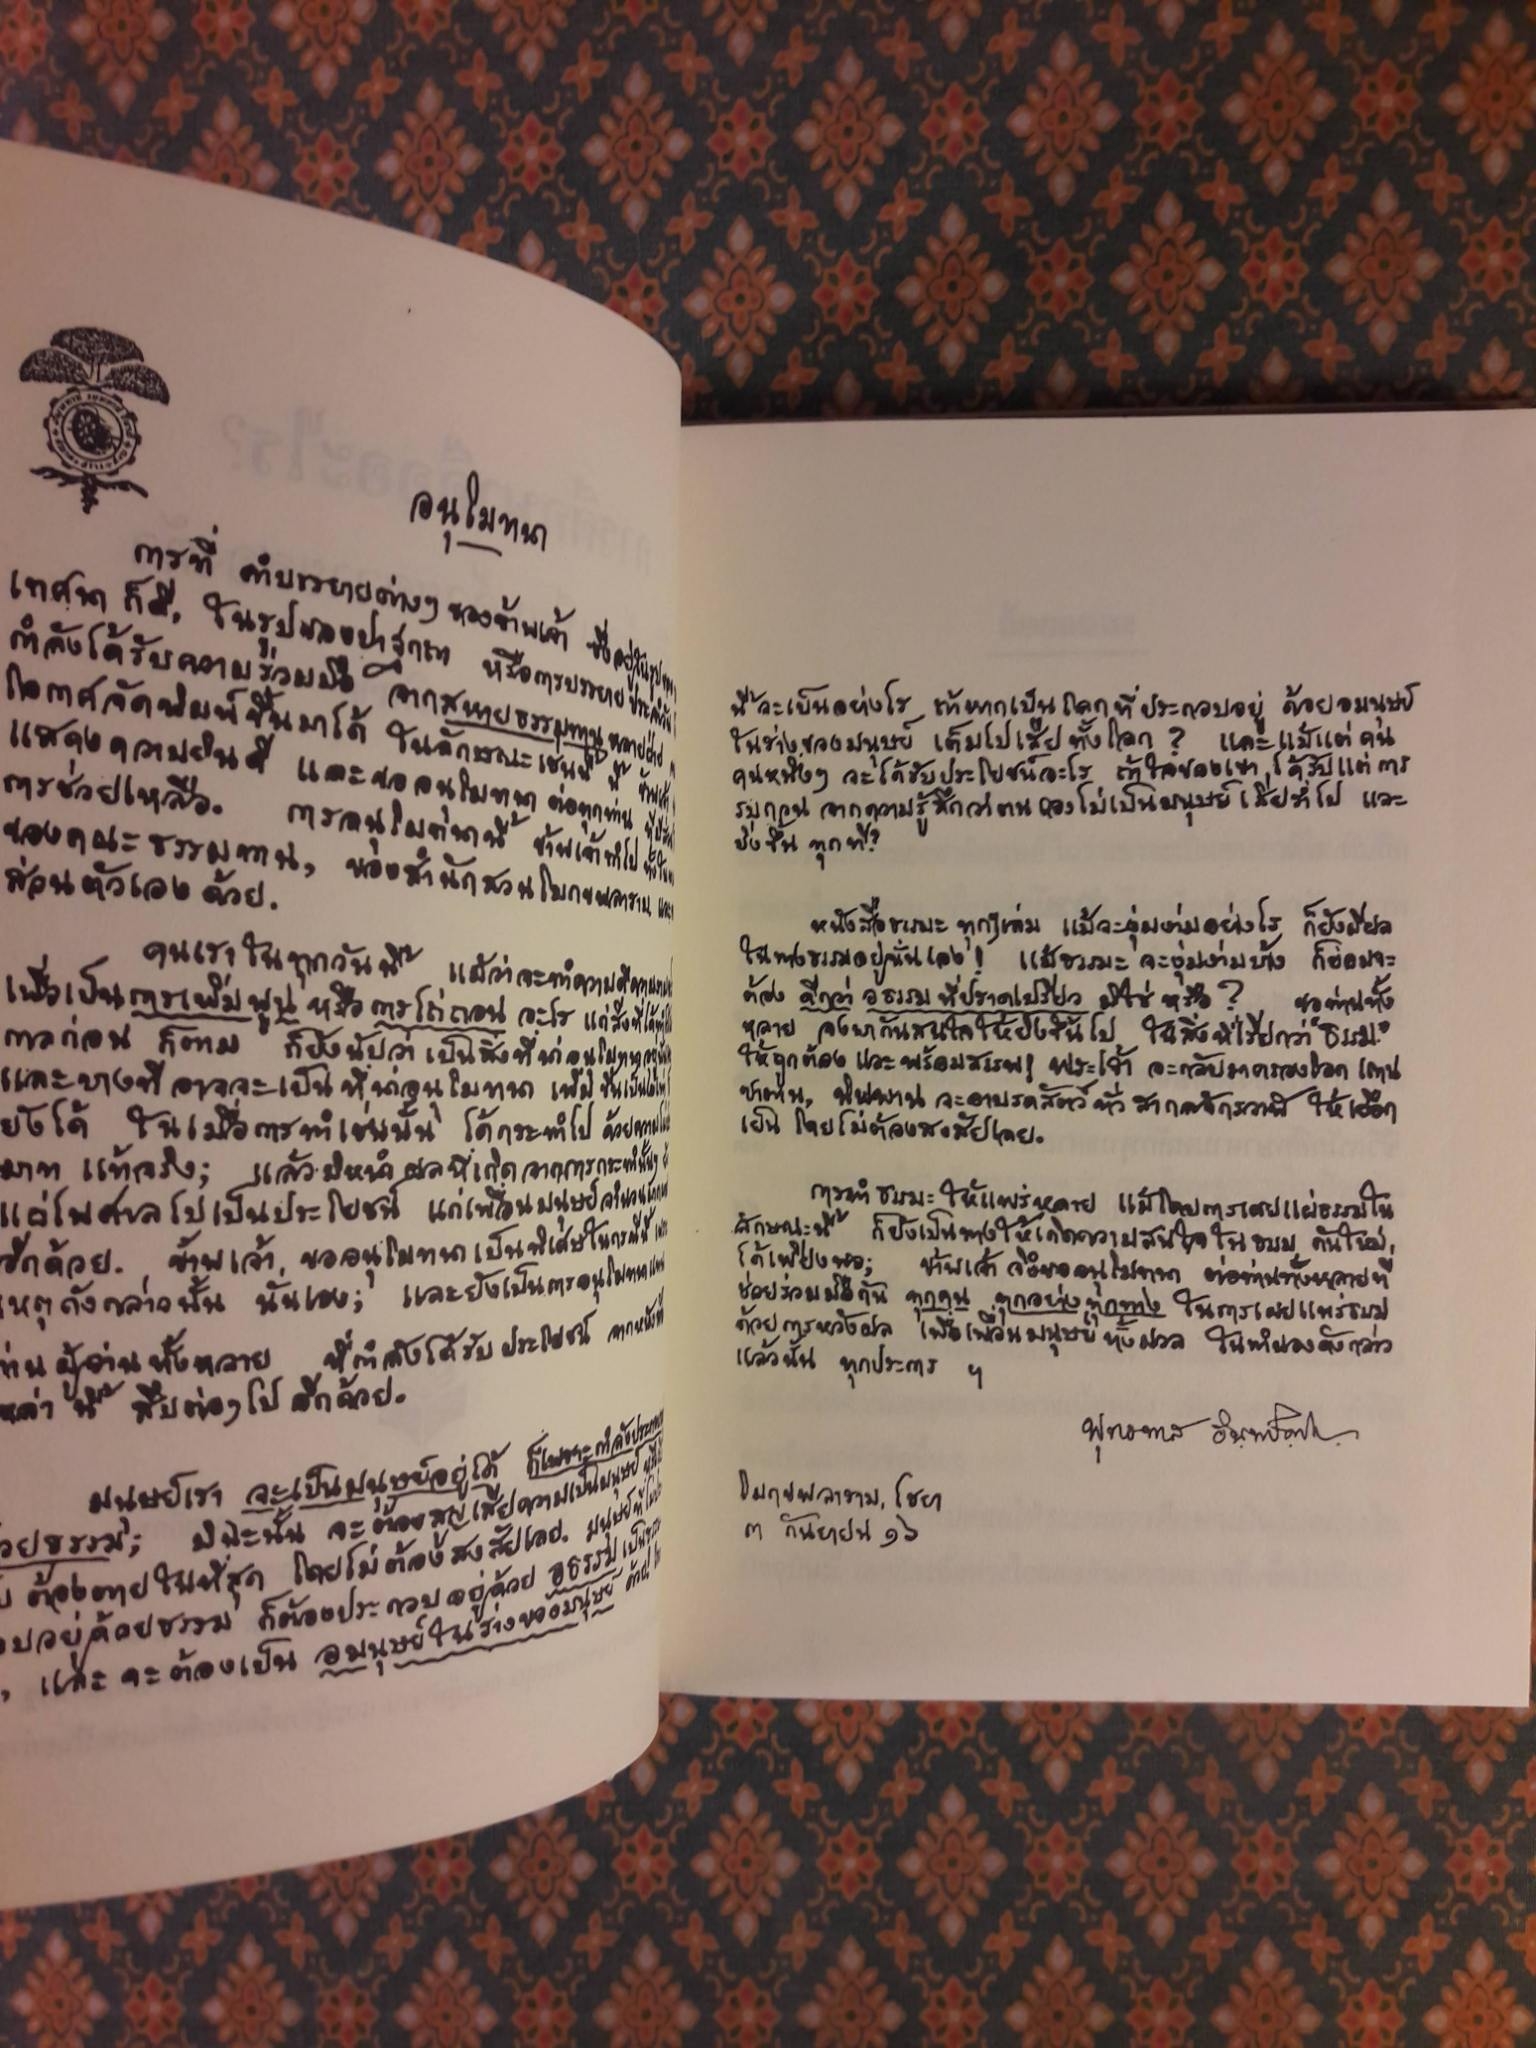 อนุโมทนา
การที่ คำบรรยายต่างๆ ของข้าพเจ้า ซึ่งอยู่ในรูป
เทศนา ก็ดี, ในรูปของปาฐกถา หรือการบรรยายประจำวัน
กำลังได้รับความร่วมมือ จากสหายธรรมทาน หลายฝ่าย
โอกาศจัดพิมพ์ขึ้นมาได้ ในลักษณะเช่นนี้ นี้ ข้าพเจ้า
แสดงความยินดี และขออนุโมทนา ต่อทุกท่าน ที่มีส่วน
การช่วยเหลือ. การอนุโมทนานี้ ข้าพเจ้าทำไป ทั้งใน
ของคณะธรรมทาน, ของสำนักสวนโมกขพลาราม, และ
ส่วนตัวเอง ด้วย.
คนเราในทุกวันนี้ แม้ว่าจะทำความดีความงาม
เพื่อเป็นการเพิ่มพูน หรือการไถ่ถอน อะไร แก่สิ่งที่ได้ทำไว้
กาลก่อน ก็ตาม ก็ยังนับว่า เป็นสิ่งที่น่าอนุโมทนาอยู่นั่น
และบางที อาจจะเป็น ที่น่าอนุโมทนา เพิ่มขึ้นเป็นไหนๆ
ยังได้ ในเมื่อการทำเช่นนั้น ได้กระทำไป ด้วยความ
มาท แท้จริง; แล้วมีหนำ ผลที่เกิด จากการกระทำนั้นๆ ยัง
แผ่ไพศาลไปเป็นประโยชน์ แก่เพื่อนมนุษย์จำนวน
อีกด้วย. ข้าพเจ้า, ขออนุโมทนาเป็นพิเศษในกรณีนี้
เหตุดังกล่าวนั้น นั่นเอง; และยังเป็นการอนุโมทนาแทน
ท่าน ผู้อ่านทั้งหลาย ที่กำลังได้รับ ประโยชน์ จากหนังสือ
เหล่า นี้ สืบต่อๆไป อีกด้วย.
มนุษย์เรา จะเป็นมนุษย์อยู่ได้ ก็เพราะกำลังประกอบ
ด้วยธรรม; มิฉะนั้น จะต้องสูญเสียความเป็นมนุษย์
ต้องตายในที่สุด โดยไม่ต้องสงสัยเลย. มนุษย์ที่ไม่
อบอยู่ด้วยธรรม ก็ต้องประกอบอยู่ด้วย อธรรม เป็น
, และ จะต้องเป็น อมนุษย์ในร่างของมนุษย์
นี้จะเป็นอย่างไร ถ้าหากเป็นโลกที่ประกอบอยู่ ด้วยอมนุษย์
ในร่างของมนุษย์ เต็มไปเสียทั้งโลก? และแม้แต่ คน
คนหนึ่งๆ จะได้รับประโยชน์อะไร ถ้าใจของเขา ได้รับแต่การ
รบกวน จากความรู้สึกว่าตนเองไม่เป็นมนุษย์เสียทำไป และ
ยิ่งขึ้น ทุกที?
หนังสือธรรมะ ทุกๆเล่ม แม้จะงุ่มง่ามอย่างไร ก็ยังมีผล
ในทางธรรมอยู่นั่นเอง! แม้ธรรมะ จะงุ่มง่ามบ้าง ก็ย่อมจะ
ต้อง ดีกว่า อธรรมที่ปราดเปรียว มิใช่ หรือ? ขอท่านทั้ง
หลาย จงพากันสนใจให้ยิ่งขึ้นไป ในสิ่งที่เรียกว่า "ธรรม"
ให้ถูกต้อง และพร้อมสรรพ! พระเจ้า จะกลับมาครองโลก แทน
ซาตาน, นิพพาน จะอาบรดสัตว์ ทั่ว สากลจักรวาฬ ให้เยือก
เย็น โดยไม่ต้องสงสัยเลย.
การทำธรรมะ ให้แพร่หลาย แม้โดยการเผยแผ่ธรรมใน
ลักษณะนี้ ก็ยังเป็นทางให้เกิดความสนใจในธรรม กันใหม่,
ได้เพียงพอ; ข้าพเจ้า จึงขออนุโมทนา ต่อท่านทั้งหลายที่
ช่วยร่วมมือกัน ทุกคน ทุกอย่างทุกทาง ในการเผยแพร่ธรรม
ด้วยการหวังผล เพื่อเพื่อนมนุษย์ทั้งมวล ในทำนองดังกล่าว
แล้วนั้น ทุกประการ ฯ
พุทธทาส อินทปัญโญ
โมกขพลาราม, ไชยา
๓ กันยายน ๑๖